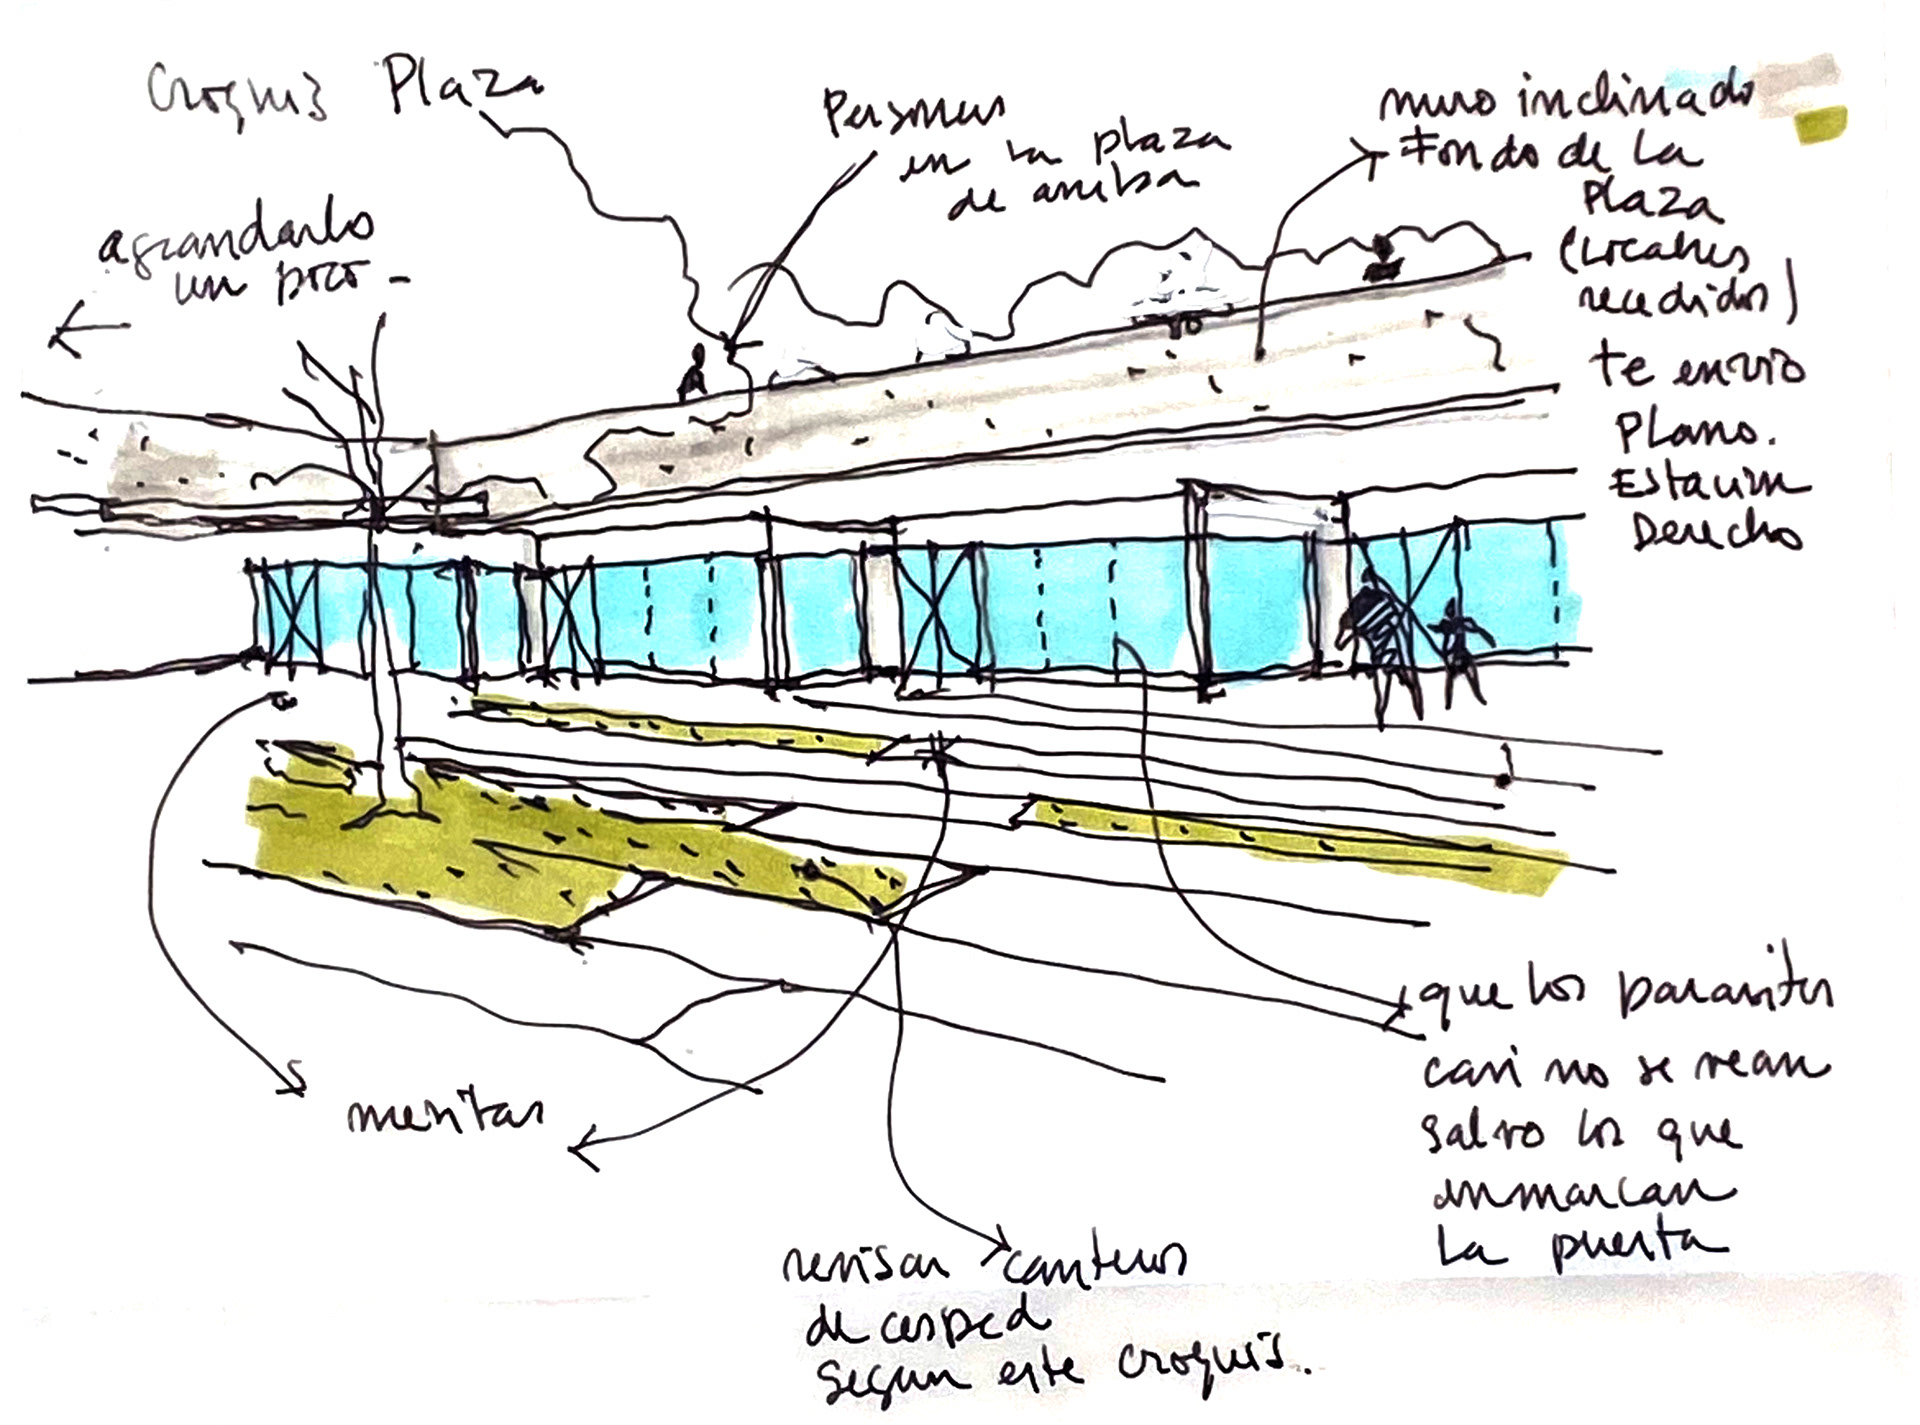 Croquis Plaza
Personas
en la plaza
de arriba
muro inclinado
Fondo de La
Plaza
(Locales
recedidos)
te envio
Plano.
Estacion
Derecho
agrandarlo
un poco -
mesitas
que los parantes
casi no se vean
salvo los que
enmarcan
La puerta
revisar canteros
de cesped
segun este croquis.